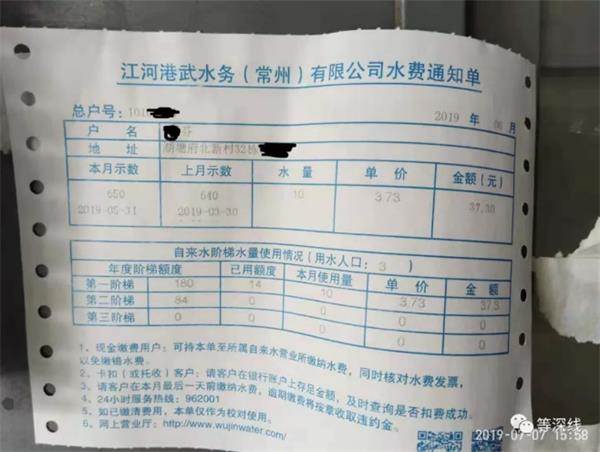 江河港武水务(常州)有限公司水费通知单
总户号: 101
2019 年 06 月
户 名 芬
地 址 湖塘府北新村32栋
本月示数 上月示数 水 量 单 价 金额(元)
650 640 10 3.73 37.30
2019-05-31 2019-03-30
自来水阶梯水量使用情况(用水人口: 3 )
年度阶梯额度 已用额度 本月使用量 单 价 金 额
第一阶梯 180 14 10 3.73 37.3
第二阶梯 84 0 0 0 0
第三阶梯 0 0 0 0
1、现金缴费用户: 可持本单至所属自来水营业所缴纳水费, 同时核对水费发票,
以免缴错水费。
2、卡扣(或托收)客户: 请客户在银行账户上存足金额, 及时查询是否扣费成功。
3、请客户在本月最后一天前缴纳水费, 逾期缴费将按章收取违约金。
4、24小时服务热线: 962001
5、如已缴清费用, 本单仅作为校对使用。
6、网上营业厅: http://www.wujinwater.com/
等深线
2019-07-07 15:58